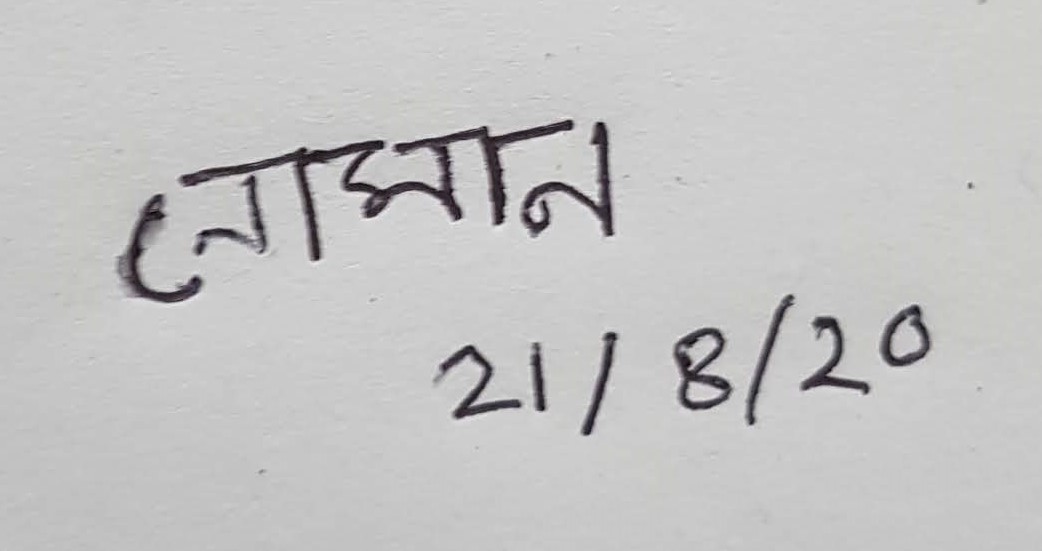 নোমান
21/8/20